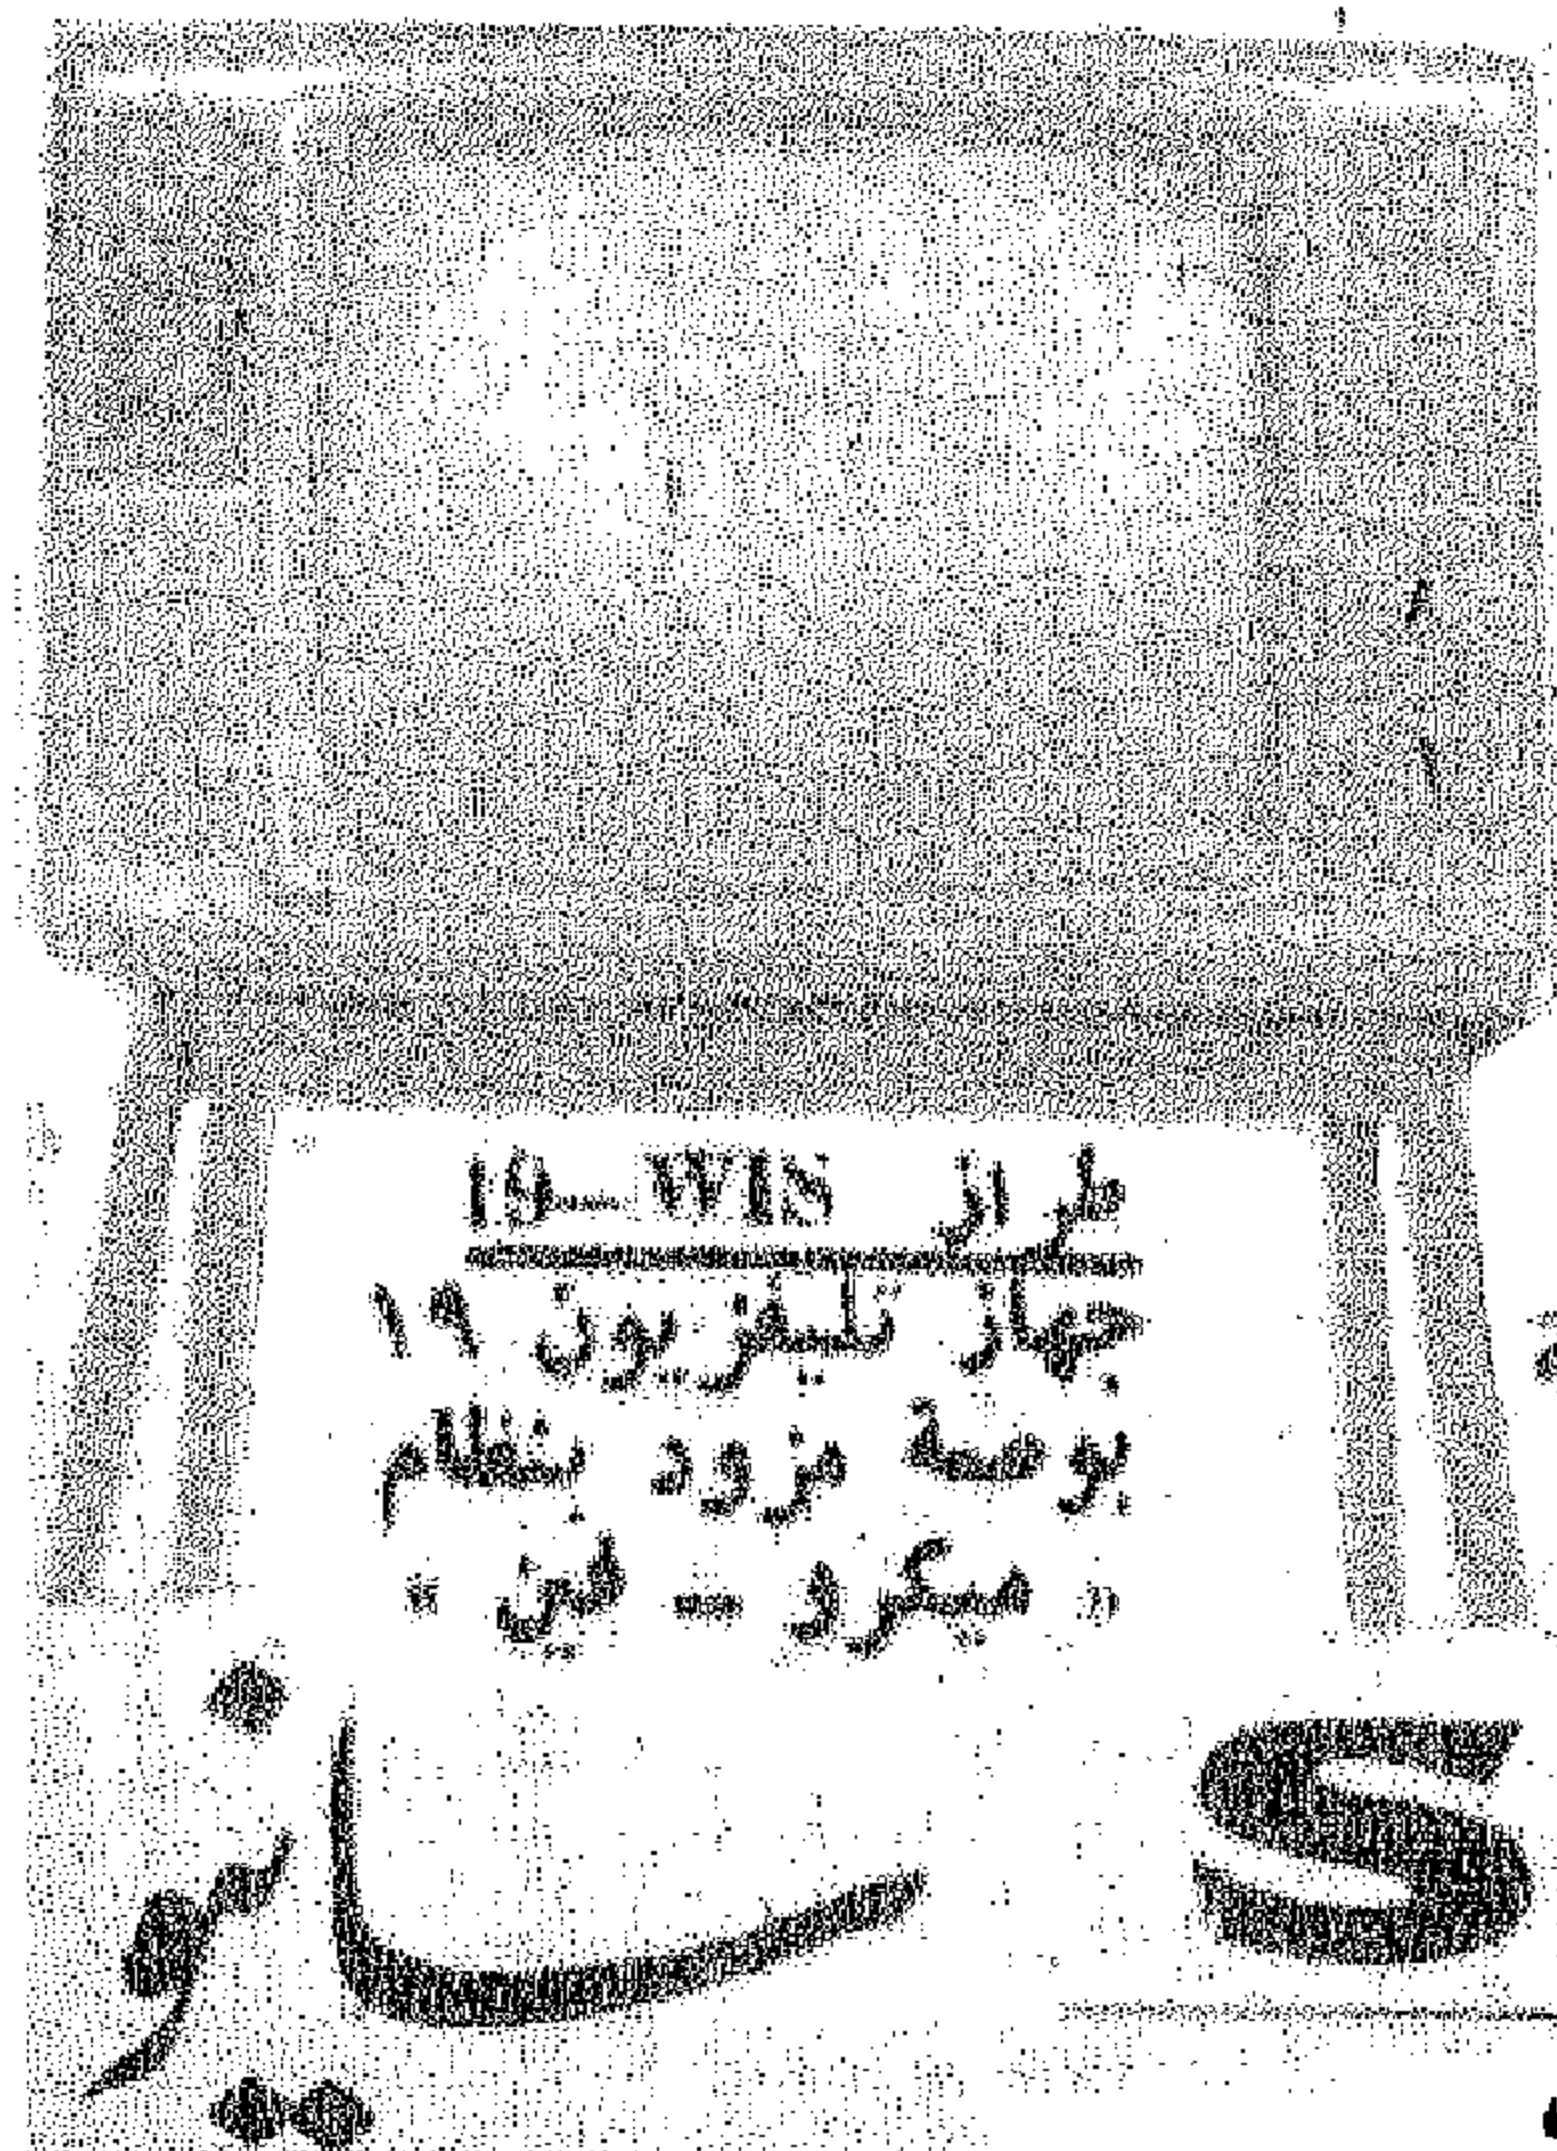 طراز 19 WIS
جهاز تليفزيون ١٩
بوصة مزود بنظام
« ميكرو - لين »
S